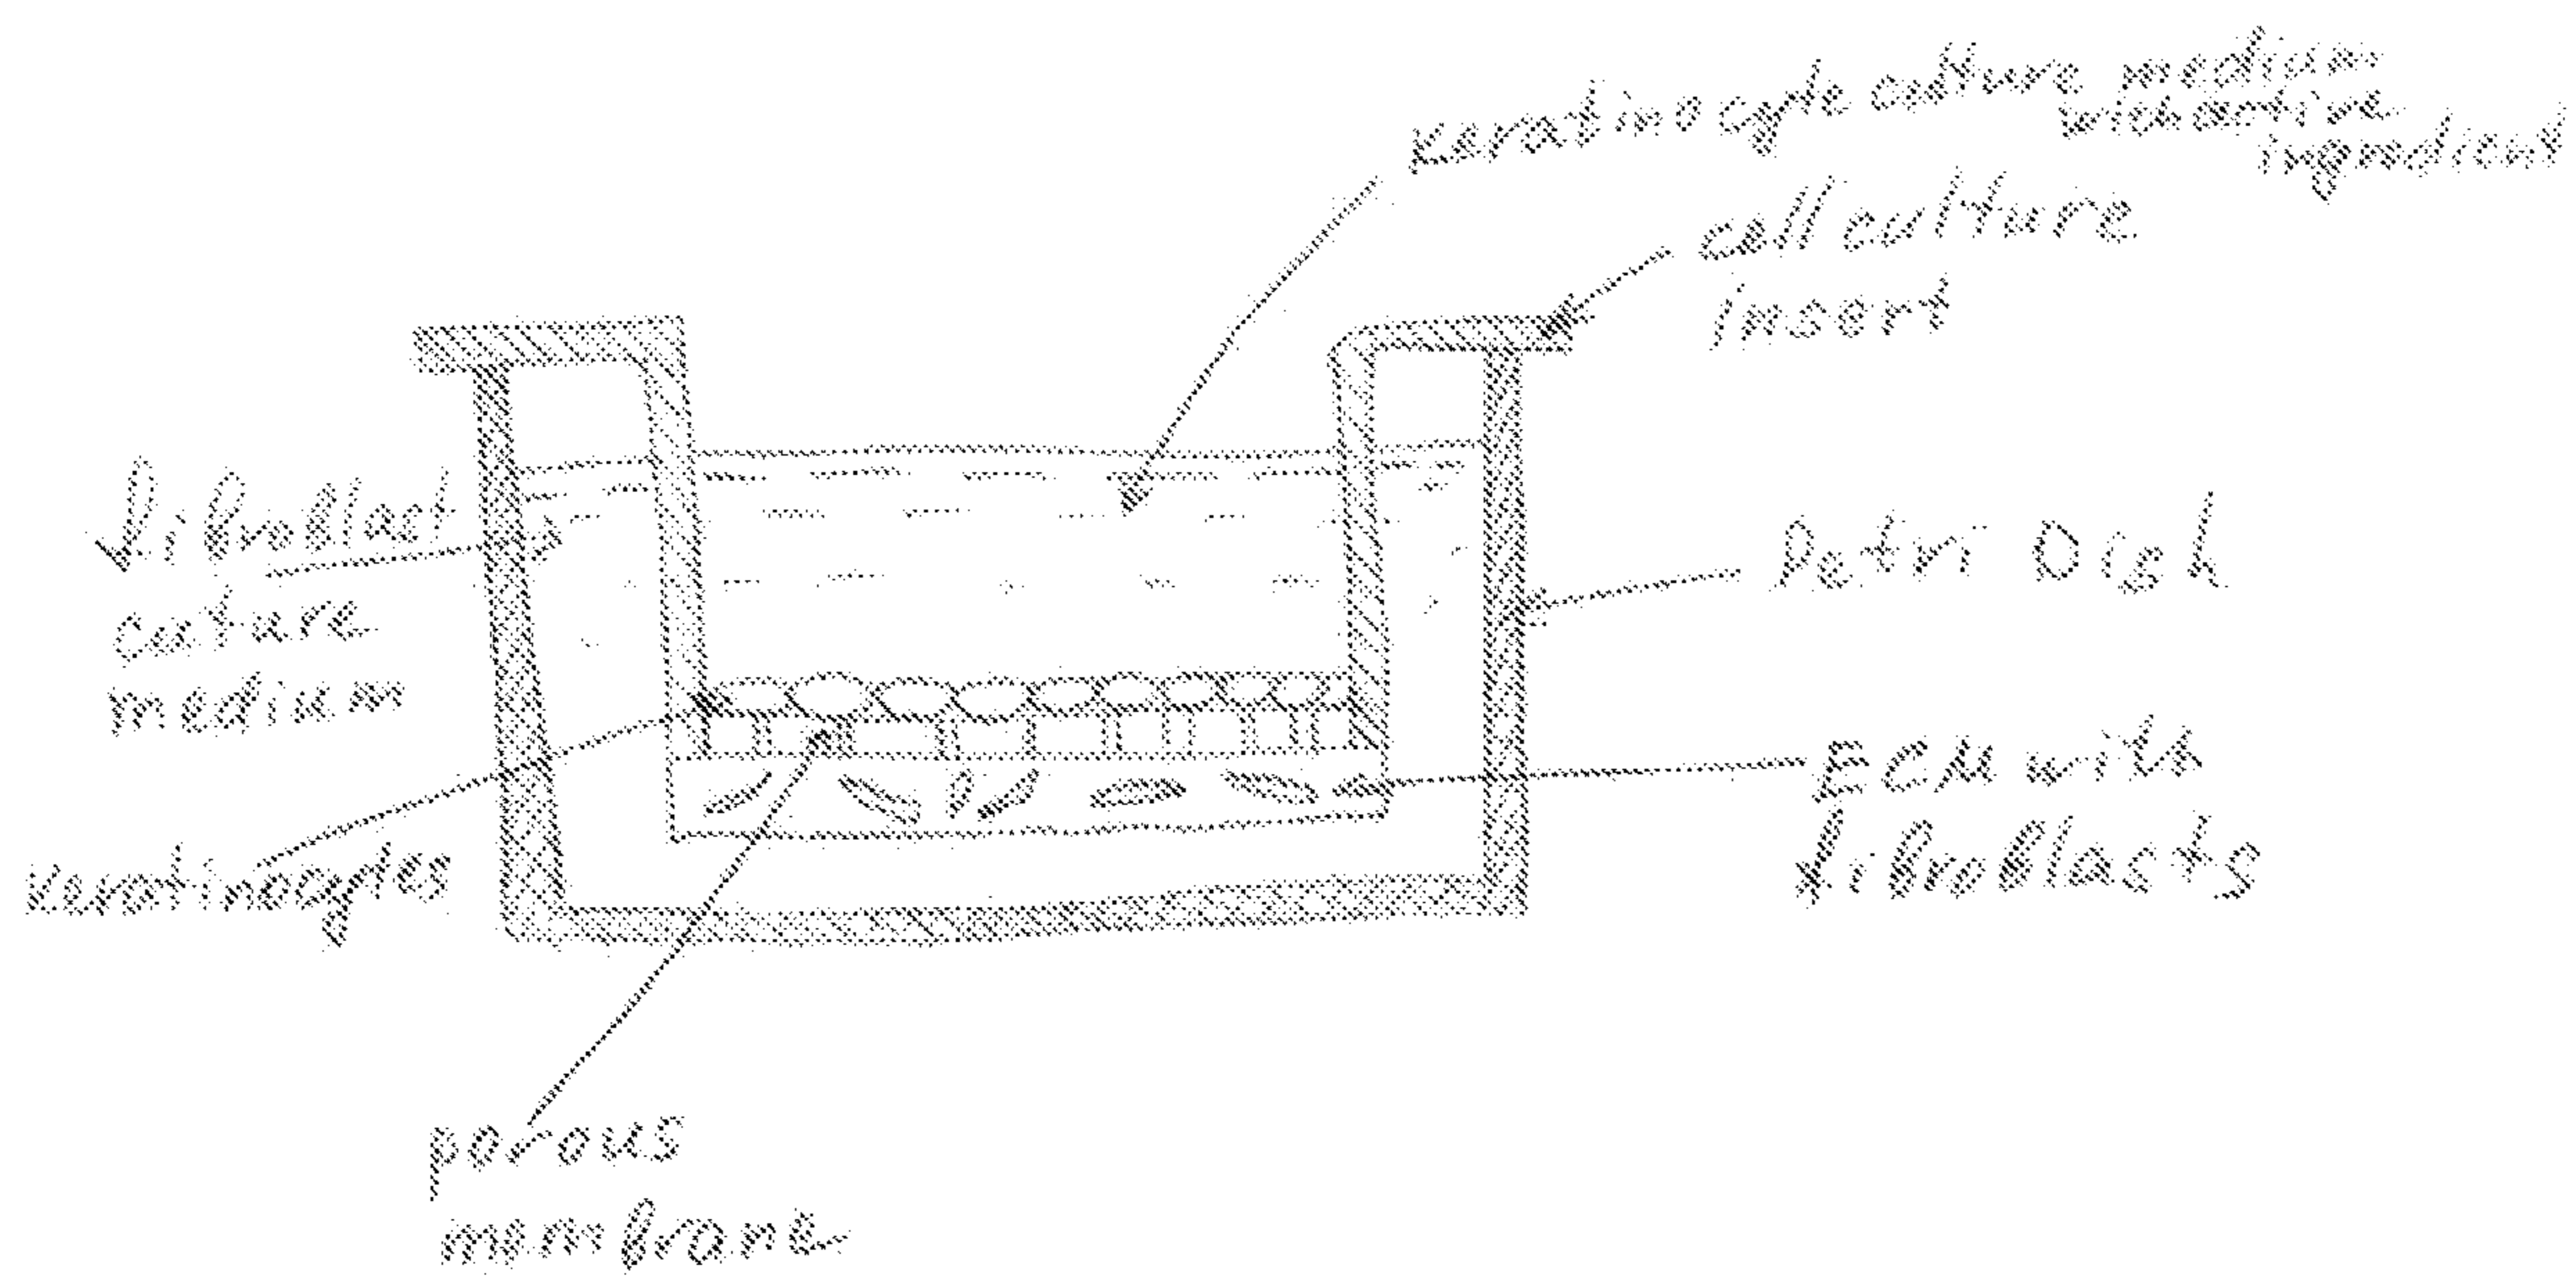 keratinocyte culture medium
with active
ingredient
cell culture
insert
fibroblast
culture
medium
Petri Dish
ECM with
fibroblasts
keratinocytes
porous
membrane